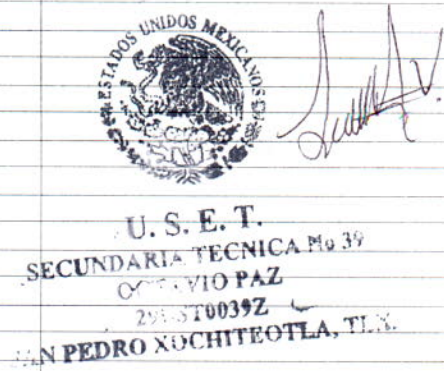 ESTADOS UNIDOS MEXICANOS
U. S. E. T.
SECUNDARIA TECNICA No 39
OCTAVIO PAZ
PEDRO XOCHITEOTLA, TLX.